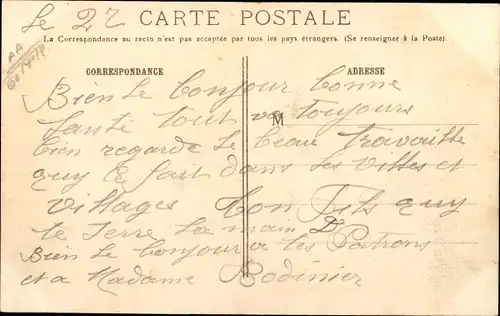 Le 27
CARTE POSTALE
La Correspondance au recto n'est pas acceptée par tous les pays étrangers. (Se renseigner à la Poste).
CORRESPONDANCE
ADRESSE
M
Bien le bonjour bonne
santé tout va toujours
bien regarde le beau travaille
quy ce fait dans les villes et
villages ton fils quy
te serre la main D
Bien le bonjour a tes Patrons
et a Madame Bodinier